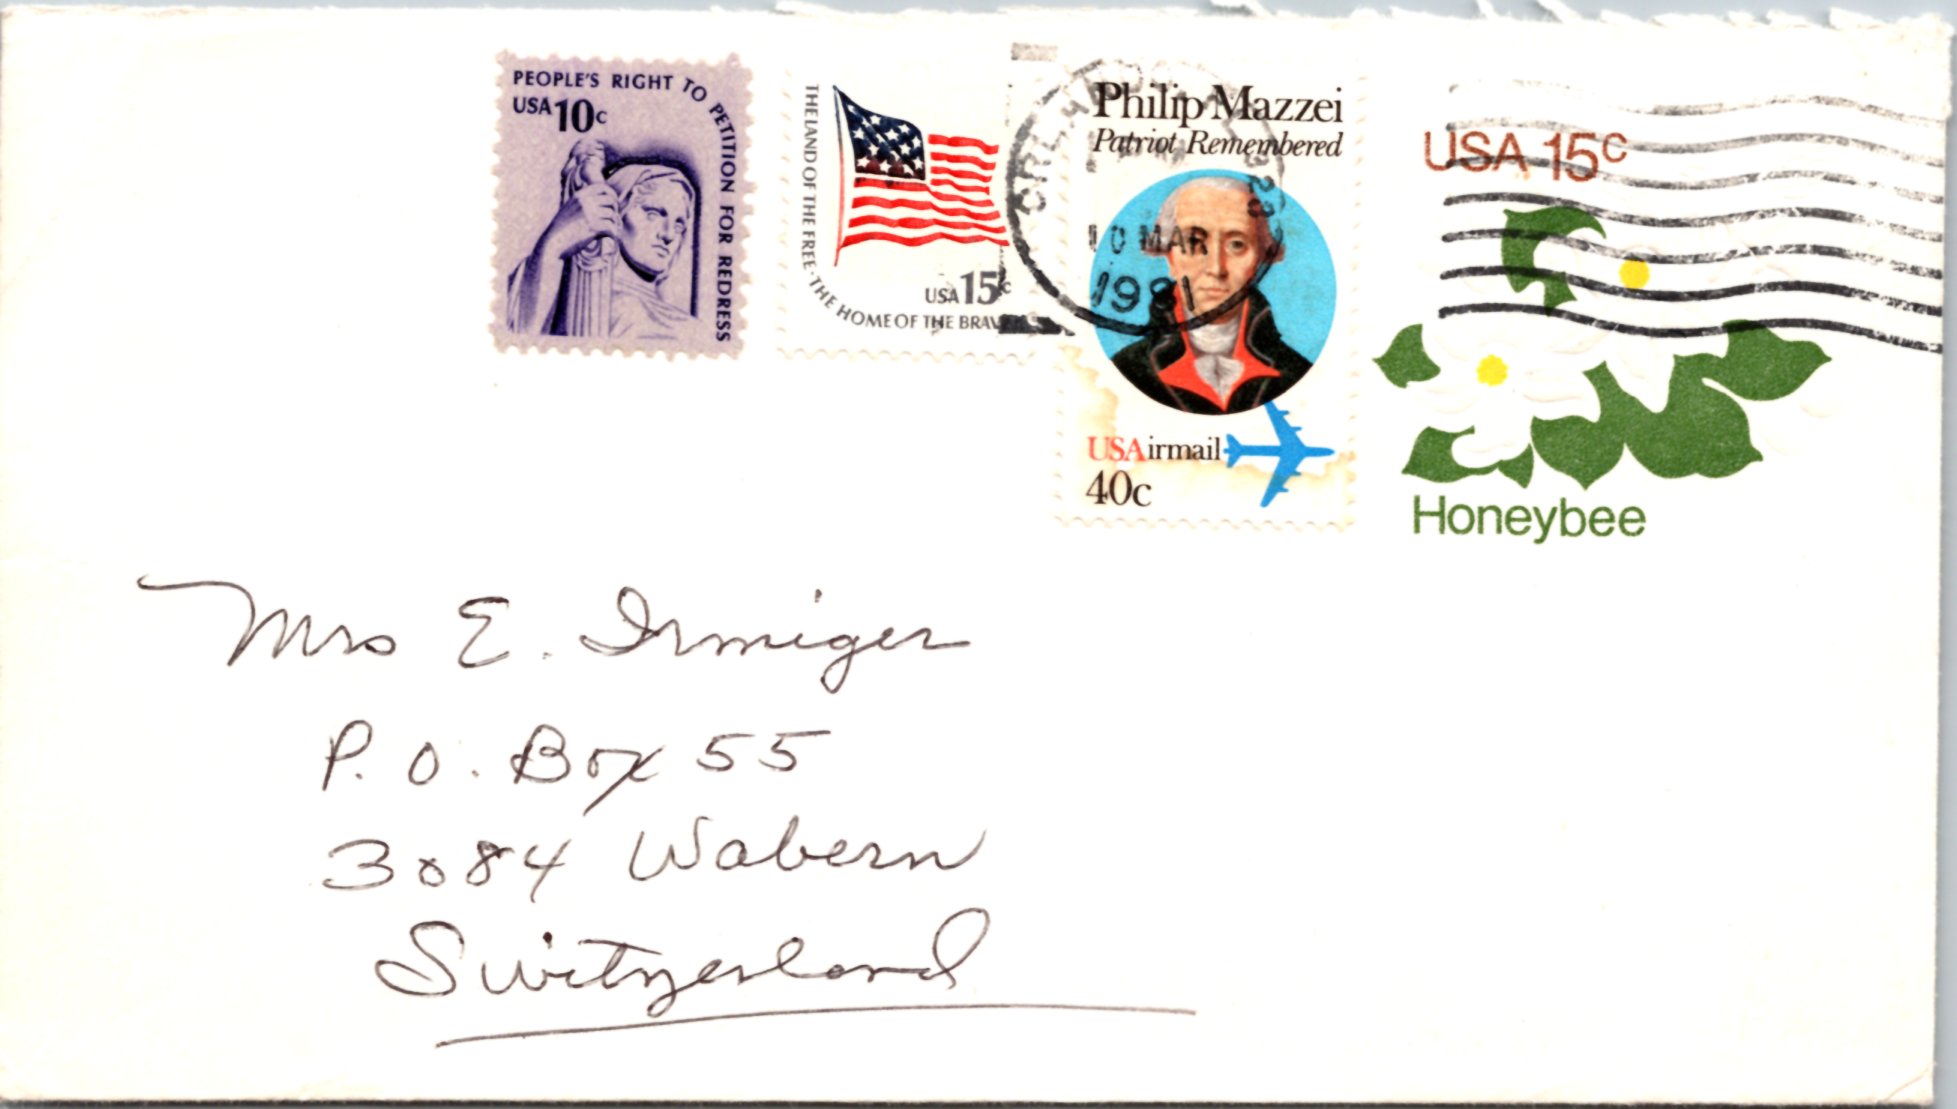 PEOPLE'S RIGHT TO PETITION FOR REDRESS
USA 10c
THE LAND OF THE FREE · THE HOME OF THE BRAVE
USA 15c
Philip Mazzei
Patriot Remembered
10 MAR
1981
USAirmail
40c
USA 15c
Honeybee
Mrs E. Irmiger
P. O. Box 55
3084 Wabern
Switzerland